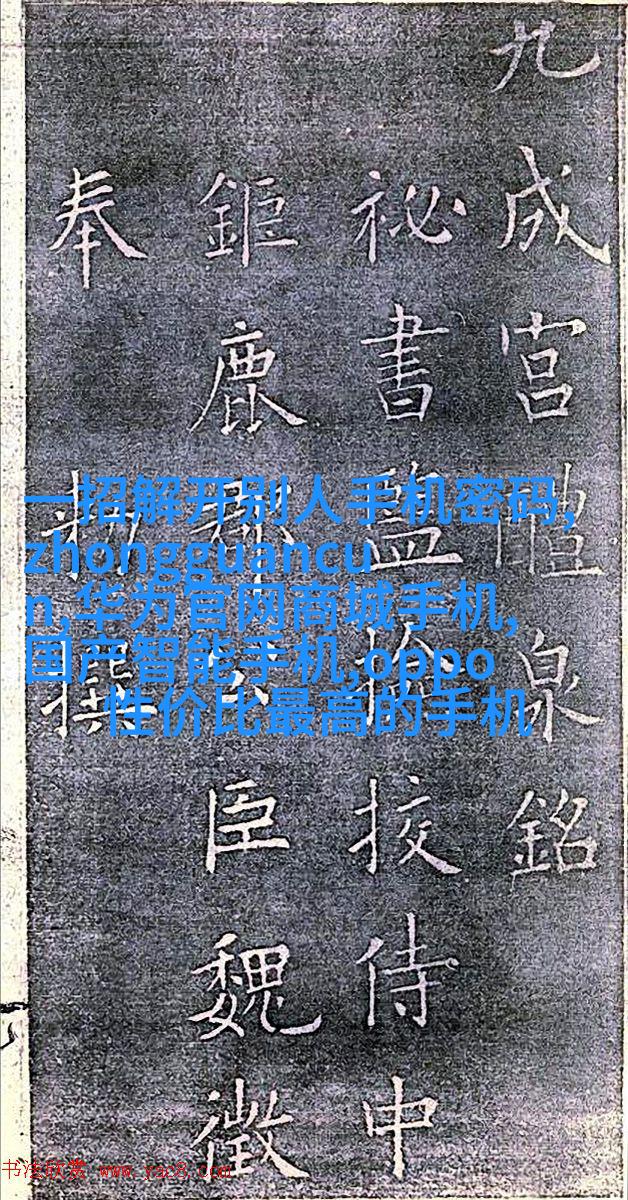 九成宮醴泉銘
祕書監撿挍侍中
鉅鹿郡公臣魏徵
奉勅撰
一招解开别人手机密码,
zhongguancu
n,华为官网商城手机,
国产智能手机,oppo
性价比最高的手机
书法欣赏 www.yac8.com